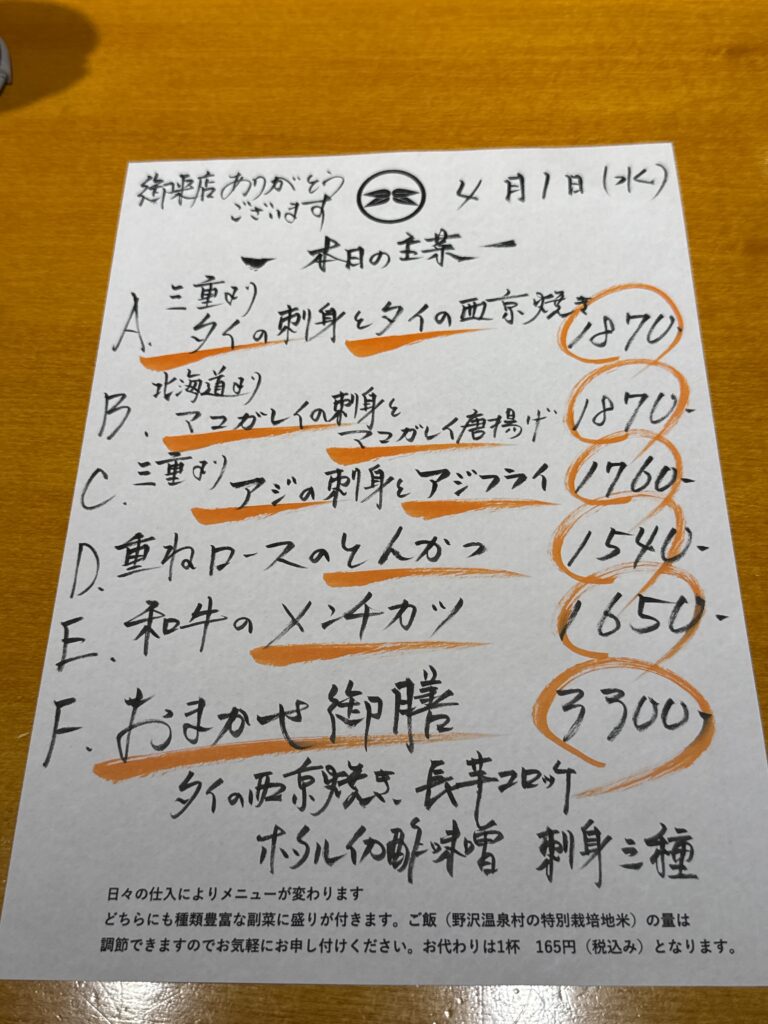 御来店ありがとう
ございます
4月1日(水)
ー 本日の主菜 ー
A. 三重より
タイの刺身とタイの西京焼き 1870-
B. 北海道より
マコガレイの刺身と
マコガレイ唐揚げ 1870-
C. 三重より アジの刺身とアジフライ 1760-
D. 重ねロースのとんかつ 1540-
E. 和牛のメンチカツ 1650-
F. おまかせ御膳 3300-
タイの西京焼き、長芋コロッケ
ホタルイカ酢味噌 刺身三種
日々の仕入によりメニューが変わります
どちらにも種類豊富な副菜に盛りが付きます。ご飯（野沢温泉村の特別栽培地米）の量は
調節できますのでお気軽にお申し付けください。お代わりは1杯 165円（税込み）となります。